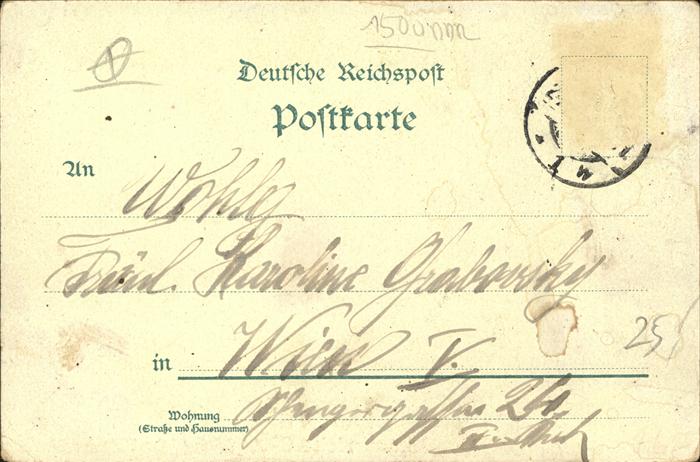 1500 nm
Deutsche Reichspost
Postkarte
An
Wohlg
Fräul. Karoline Grabovsky
25
in Wien V.
Wohnung
(Straße und Hausnummer)